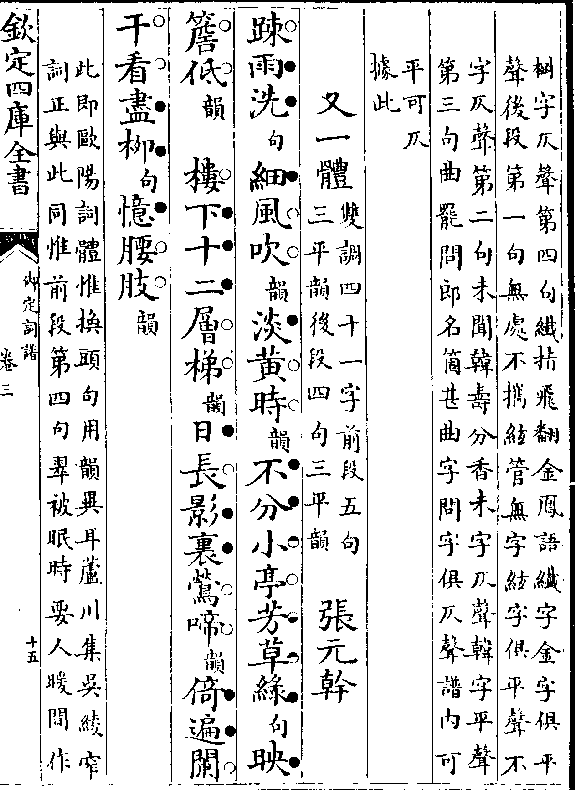 樹字仄聲第四句纖指飛翻金鳳語纖字金字俱平
聲後段第一句無處不攜絃管無字絃字俱平聲不
字仄聲第二句未聞韓壽分香未字仄聲韓字平聲
第三句曲罷問郎名箇甚曲字問字俱仄聲譜内可
平可仄
據此
又一體
雙調四十一字前段五句
三平韻後段四句三平韻
張元幹
疎雨洗句細風吹韻淡黃時韻不分小亭芳草綠句映
簷低韻 樓下十二層梯韻日長影裏鶯啼韻倚遍闌
干看盡柳句憶腰肢韻
此即歐陽詞體惟換頭句用韻異耳蘆川集吳綾窄
詞正與此同惟前段第四句翠被眠時要人暖間作
欽定四庫全書
御定詞譜
卷三
十五